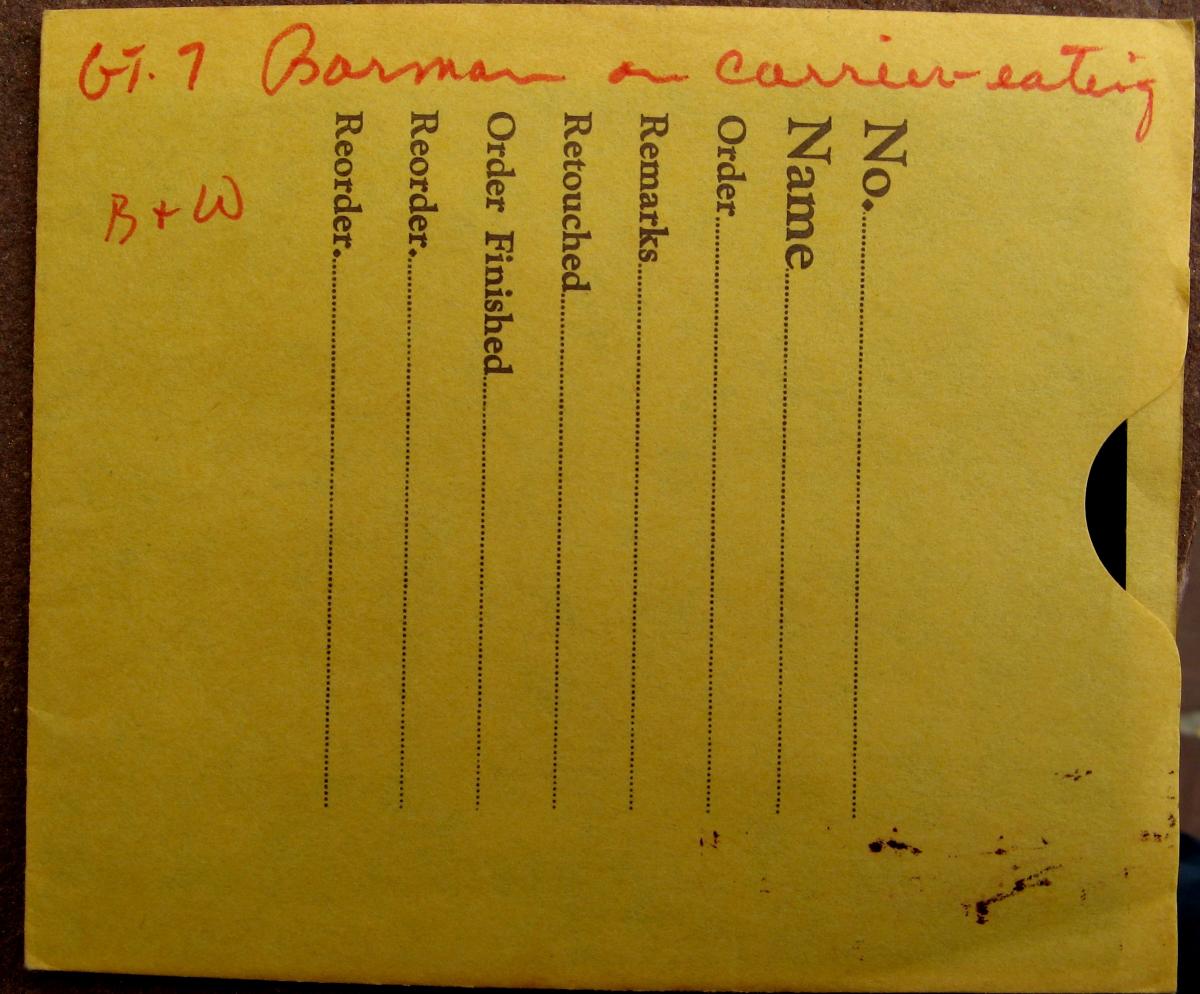 GT. 7 Borman on carrier-eating
B + W
No.
Name
Order
Remarks
Retouched
Order Finished
Reorder.
Reorder.